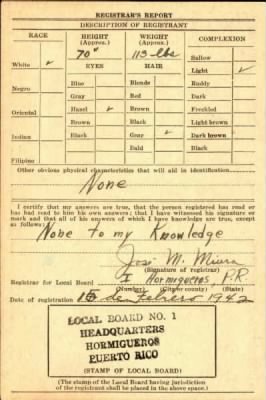 REGISTRAR'S REPORT
DESCRIPTION OF REGISTRANT
RACE HEIGHT (Approx.) WEIGHT (Approx.) COMPLEXION
70" 113 lbs
White ✓ EYES HAIR Sallow
Light ✓
Negro Blue Blonde Ruddy
Gray Red Dark
Oriental Hazel ✓ Brown Freckled
Brown Black Light brown
Indian Black Gray ✓ Dark brown
Bald Black
Filipino
Other obvious physical characteristics that will aid in identification
None
I certify that my answers are true, that the person registered has read or
has had read to him his own answers; that I have witnessed his signature or
mark and that all of his answers of which I have knowledge are true, except
as follows:
None to my Knowledge
José M.
(Signature of registrar)
Registrar for Local Board I Hormigueros, P.R.
(Number) (City or county) (State)
Date of registration 16 de Febrero 1942
LOCAL BOARD NO. 1
HEADQUARTERS
HORMIGUEROS
PUERTO RICO
(STAMP OF LOCAL BOARD)
(The stamp of the Local Board having jurisdiction
of the registrant shall be placed in the above space.)